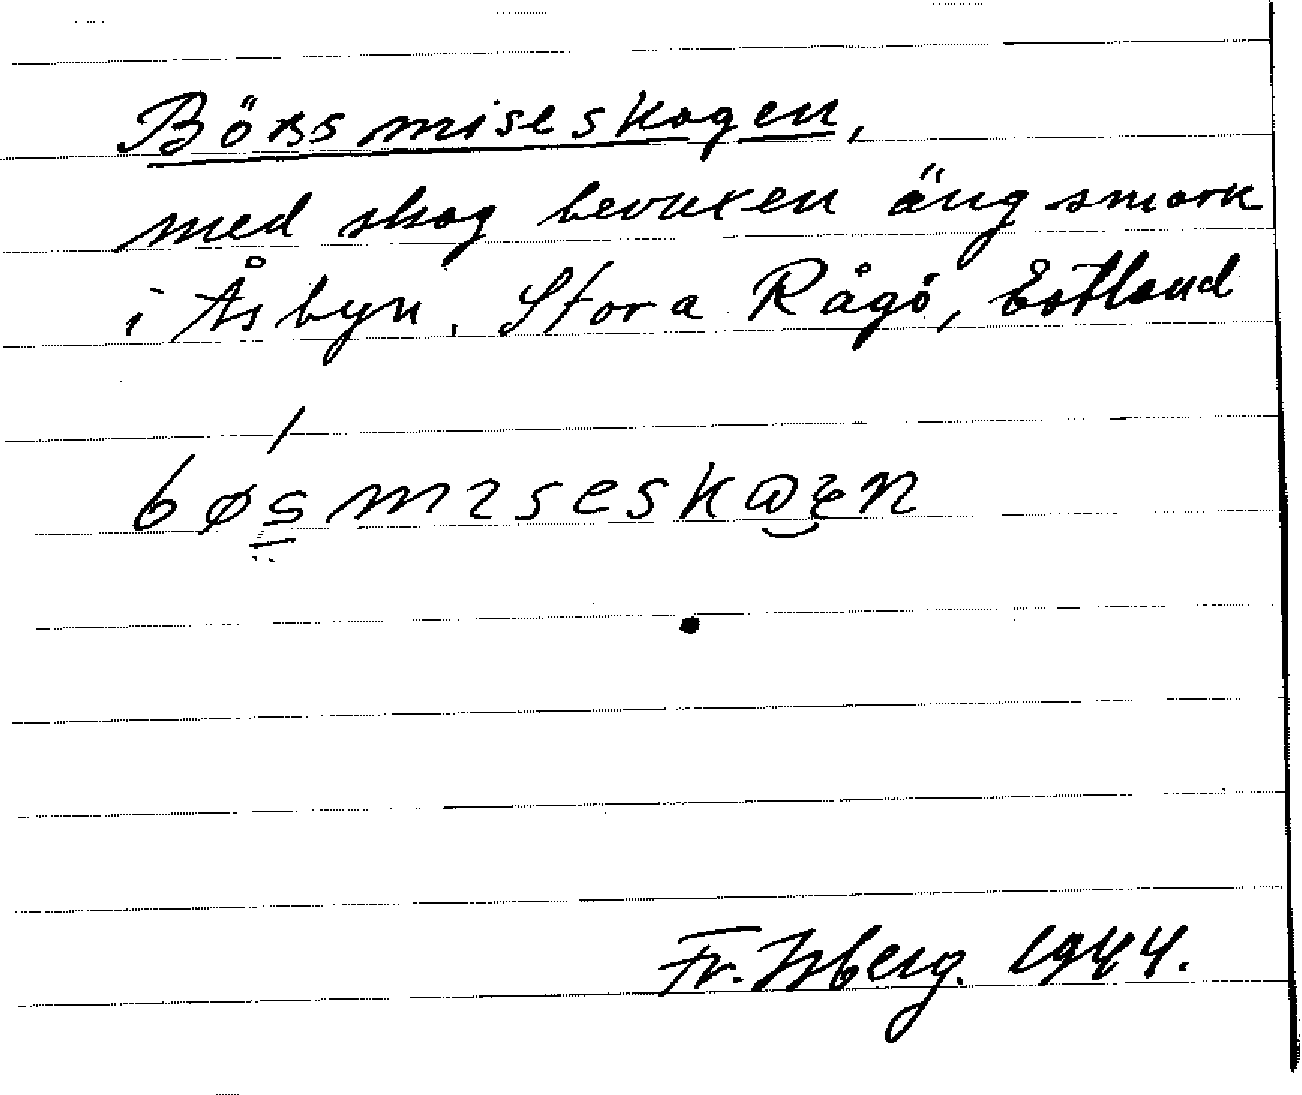 Börssmiseskogen,
med skog bevuxen ängsmark
i Åsbyn. Stora Rågö, Estland
bøsmıseskωgen
Fr. Isberg. 1944.